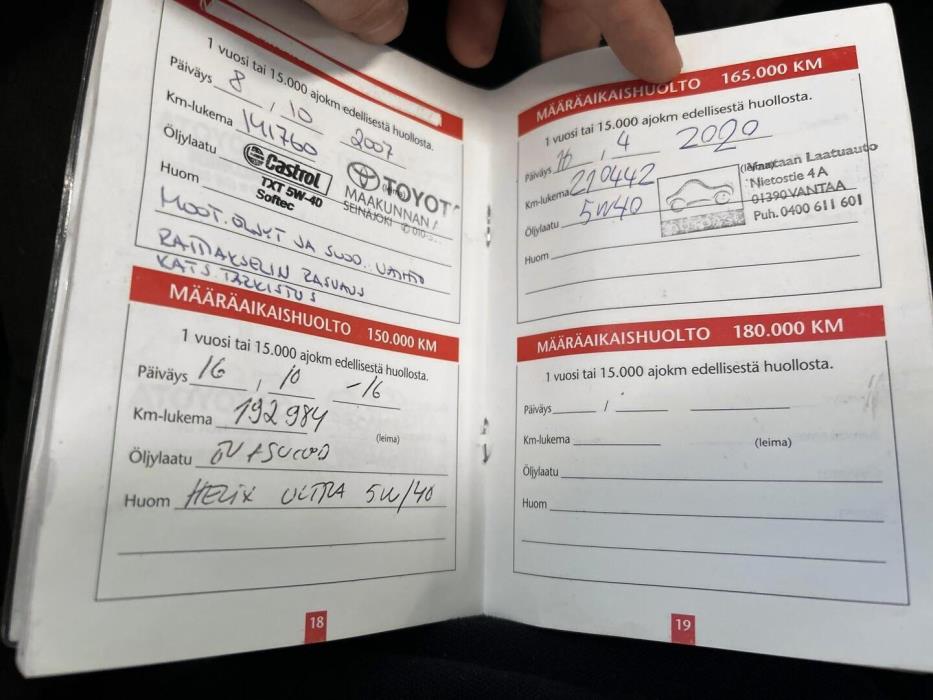 1 vuosi tai 15.000 ajokm edellisestä huollosta.
Päiväys 8 , 10 2007
Km-lukema 141760
Öljylaatu Castrol
TXT 5W-40
Softec
TOYOT
MAAKUNNAN /
SEINÄJOKI
Huom
MOOT. ÖLJYT JA SUOD. VAIHTO
RATTIAKSELIN RASVAUS
KATS. TARKISTUS
MÄÄRÄAIKAISHUOLTO 150.000 KM
1 vuosi tai 15.000 ajokm edellisestä huollosta.
Päiväys 16 , 10 -16
Km-lukema 192984
(leima)
Öljylaatu
Huom HELIX ULTRA 5W/40
18
MÄÄRÄAIKAISHUOLTO 165.000 KM
1 vuosi tai 15.000 ajokm edellisestä huollosta.
Päiväys 16 , 4 2020
Km-lukema 210442
Öljylaatu 5W40
Vantaan Laatuauto
Nietostie 4 A
01390 VANTAA
Puh. 0400 611 601
Huom
MÄÄRÄAIKAISHUOLTO 180.000 KM
1 vuosi tai 15.000 ajokm edellisestä huollosta.
Päiväys /
Km-lukema
(leima)
Öljylaatu
Huom
19